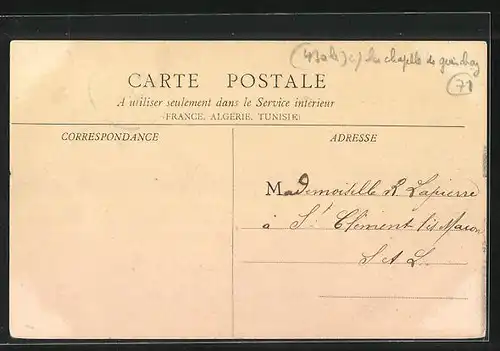 la chapelle de guinchay
71
CARTE POSTALE
A utiliser seulement dans le Service intérieur
(FRANCE, ALGERIE, TUNISIE)
CORRESPONDANCE
ADRESSE
Mademoiselle R Lapierre
à St Clément lès Macon
S & L